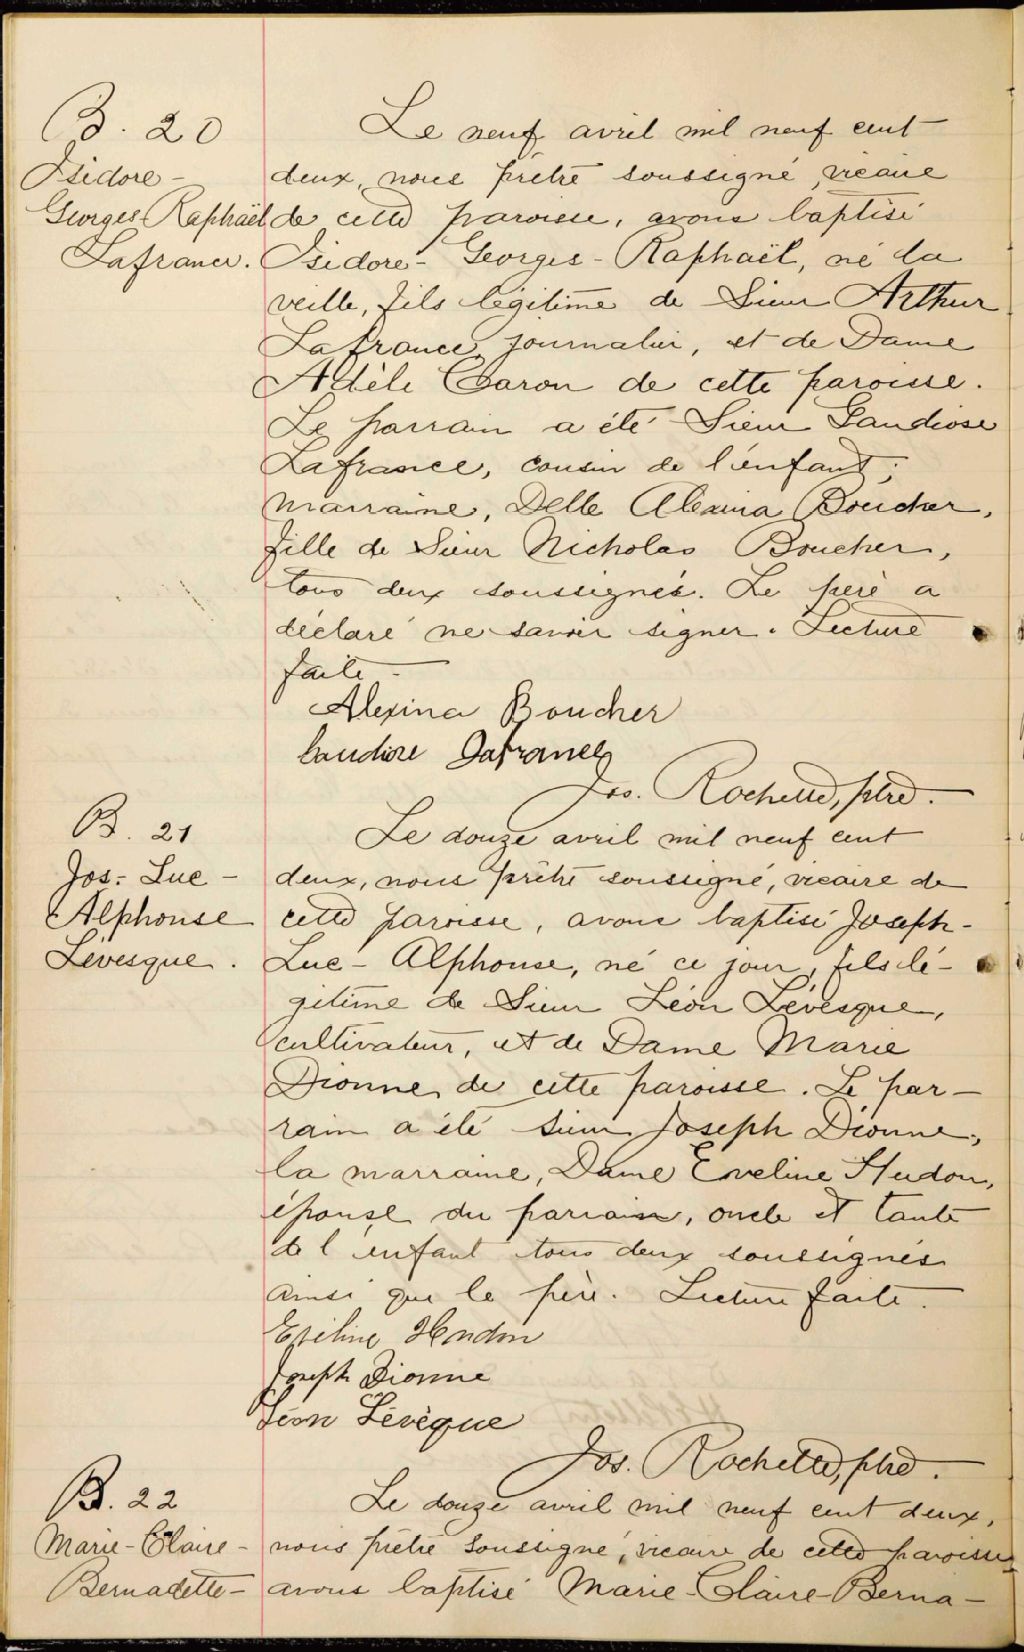 B. 20
Isidore-
Georges-Raphaël
Lafrance.
Le neuf avril mil neuf cent
deux, nous prêtre soussigné, vicaire
de cette paroisse, avons baptisé
Isidore-Georges-Raphaël, né la
veille, fils légitime de Sieur Arthur
Lafrance, journalier, et de Dame
Adèle Caron de cette paroisse.
Le parrain a été Sieur Gaudiose
Lafrance, cousin de l'enfant;
marraine, Delle Alexina Boucher,
fille de Sieur Nicholas Boucher,
tous deux soussignés. Le père a
déclaré ne savoir signer. Lecture
faite-
Alexina Boucher
Gaudiose Lafrance
Jos. Rochette, ptre.
B. 21
Jos.- Luc -
Alphonse
Lévesque.
Le douze avril mil neuf cent
deux, nous prêtre soussigné, vicaire de
cette paroisse, avons baptisé Joseph-
Luc-Alphonse, né ce jour, fils lé-
gitime de Sieur Léon Lévesque,
cultivateur, et de Dame Marie
Dionne, de cette paroisse. Le par-
rain a été sieur Joseph Dionne,
la marraine, Dame Eveline Hudon,
épouse du parrain, oncle et tante
de l'enfant tous deux soussignés
ainsi que le père. Lecture faite.
Eveline Hudon
Joseph Dionne
Léon Lévèque
Jos. Rochette, ptre.
B. 22
Marie-Claire-
Bernadette-
Le douze avril mil neuf cent deux,
nous prêtre soussigné, vicaire de cette paroisse
avons baptisé Marie-Claire-Berna-